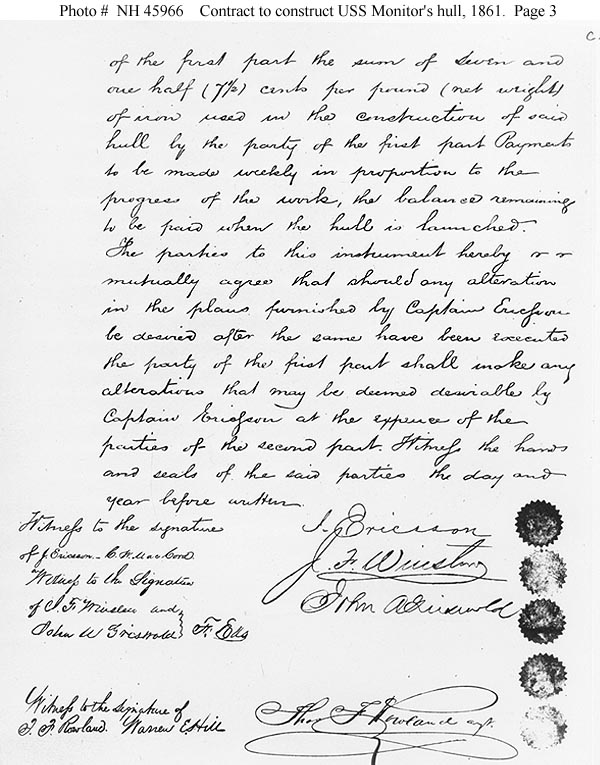 Photo # NH 45966 Contract to construct USS Monitor's hull, 1861. Page 3
C.
of the first part the sum of seven and
one half (7½) cents per pound (net weight)
of iron used in the construction of said
hull by the party of the first part Payments
to be made weekly in proportion to the
progress of the work, the balance remaining
to be paid when the hull is launched.
The parties to this instrument hereby
mutually agree that should any alteration
in the plans furnished by Captain Ericsson
be desired after the same have been executed
the party of the first part shall make any
alterations that may be deemed desirable by
Captain Ericsson at the expence of the
parties of the second part. Witness the hands
and seals of the said parties the day and
year before written.
J. Ericsson
J. F. Winslow
John A Griswold
Witness to the signature
of J. Ericsson - C. W. MacCord
Witness to the Signature
of J. F. Winslow and
John A Griswold
Witness to the signature of
T. F. Rowland. Warren E. Hill
Thos F Rowland agt.